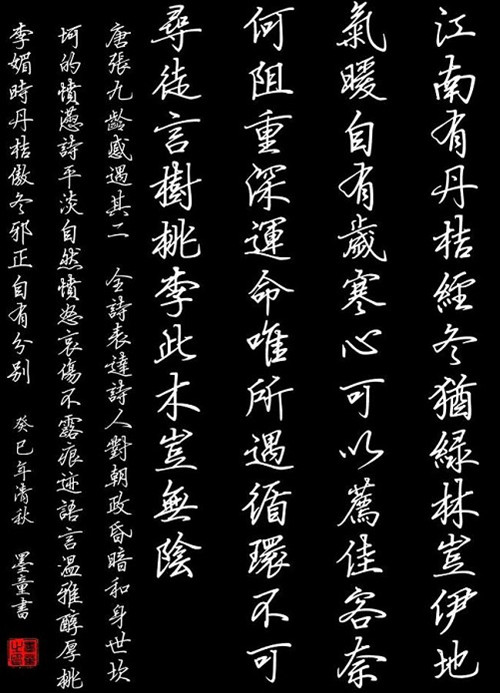 江南有丹桔經冬猶綠林豈伊地
氣暖自有歲寒心可以薦佳客奈
何阻重深運命唯所遇循環不可
尋徒言樹桃李此木豈無陰
唐張九齡感遇其二 全詩表達詩人對朝政昏暗和身世坎
坷的憤懣詩平淡自然憤怒哀傷不露痕迹語言溫雅醇厚桃
李媚時丹桔傲冬邪正自有分別 癸巳年清秋 墨童書